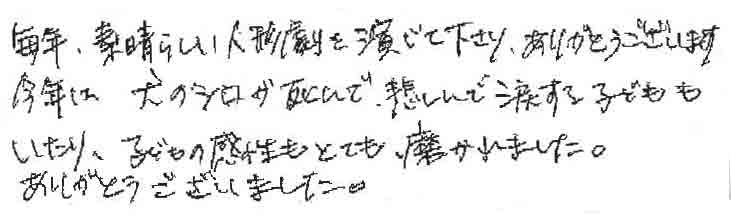 毎年、素晴らしい人形劇を演じて下さり、ありがとうございます
今年は 犬のシロが死んで、悲しんで涙する子どもも
いたり、子どもの感性もとても磨かれました。
ありがとうございました。